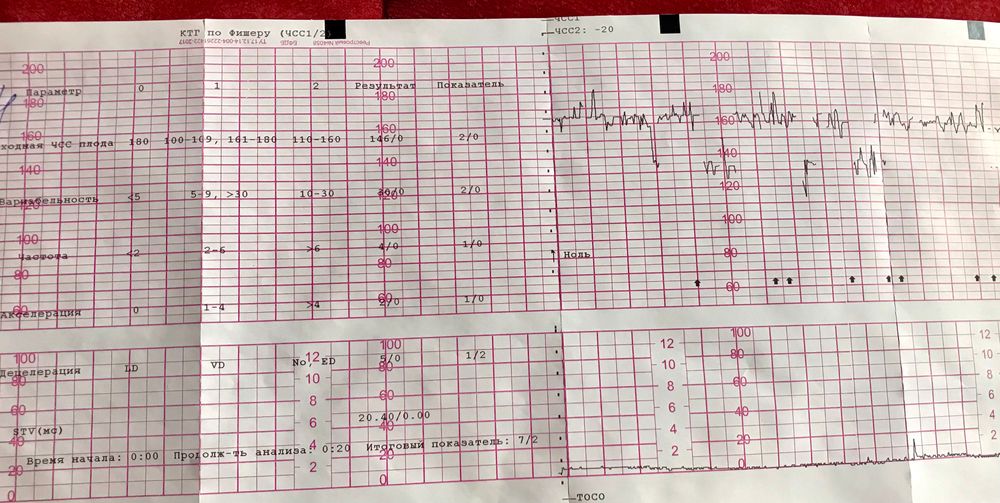 КТГ по Фишеру (ЧСС1/2)
ЧСС1
ЧСС2: -20
Параметр 0 1 2 Результат Показатель
ходная ЧСС плода 180 100-109, 161-180 110-160 146/0 2/0
Вариабельность <5 5-9, >30 10-30 30/0 2/0
Частота <2 2-6 >6 4/0 1/0
Ноль
Акселерация 0 1-4 >4 2/0 1/0
Децелерация LD VD No, ED 5/0 1/2
STV(мс) 20.40/0.00
Время начала: 0:00 Продолж-ть анализа: 0:20 Итоговый показатель: 7/2
TOCO
200 200 200 200
180 180 180 180
160 160 160 160
140 140 140
120 120 120
100 100 100 100
80 80 80 80
60 60 60 60
100 12 100 12 100 12
80 10 80 10 80 10
60 8 60 8 60 8
40 6 40 6 40 6
20 4 20 4 20 4
0 2 0 2 0 2